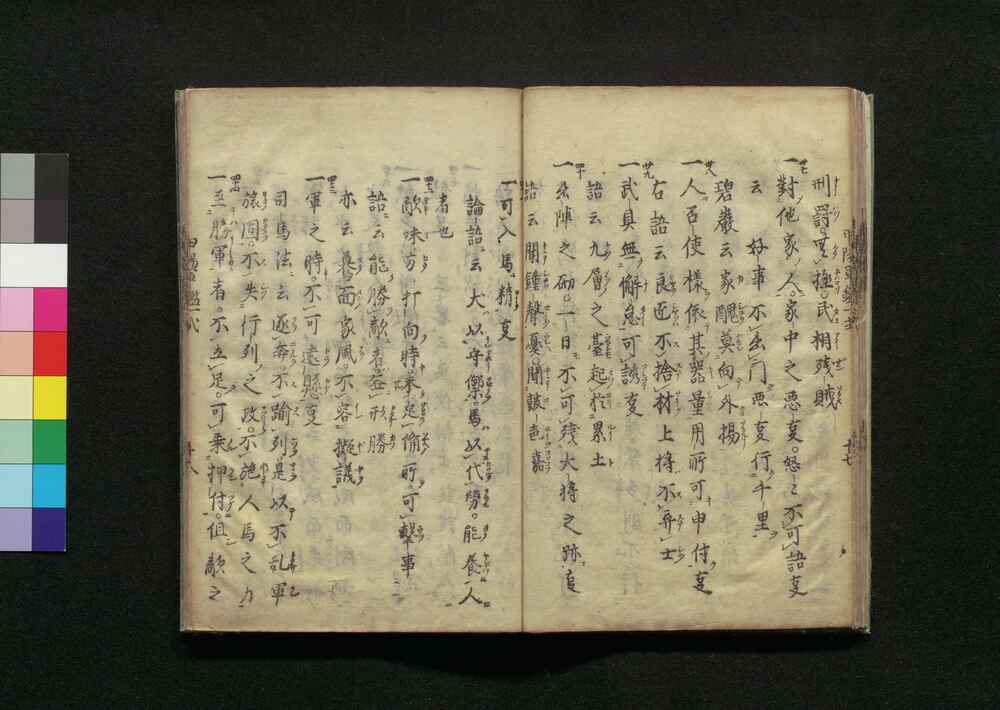 刑罰、無極。武相残賊
一 対他家、人、家中之悪叓。怒々不可語叓
云 好事不出門。悪叓行千里
碧巌云家醜莫向外揚
一人召使様依其器量用所可申付叓
右語云良匠不捨材上将不弃士
一武具無懈怠可誘叓
語云九層之臺起於累土
一出陣之砌。一日不可残大将之跡叓
語云聞鐘聲憂。聞皷色嘉
一可入馬精叓
論語云犬以守禦馬以代勞。能養人
者也
一敵味方打向時未定備所可撃事
語云能勝敵者 形勝
亦云 面家風。不容擬議
一軍之時不可遠懸叓
司馬法云逐奔不踰列是以不乱軍
旅 。不失行列之政。不絶人馬之力
一至勝軍者。不立足。可乗押付。但敵之